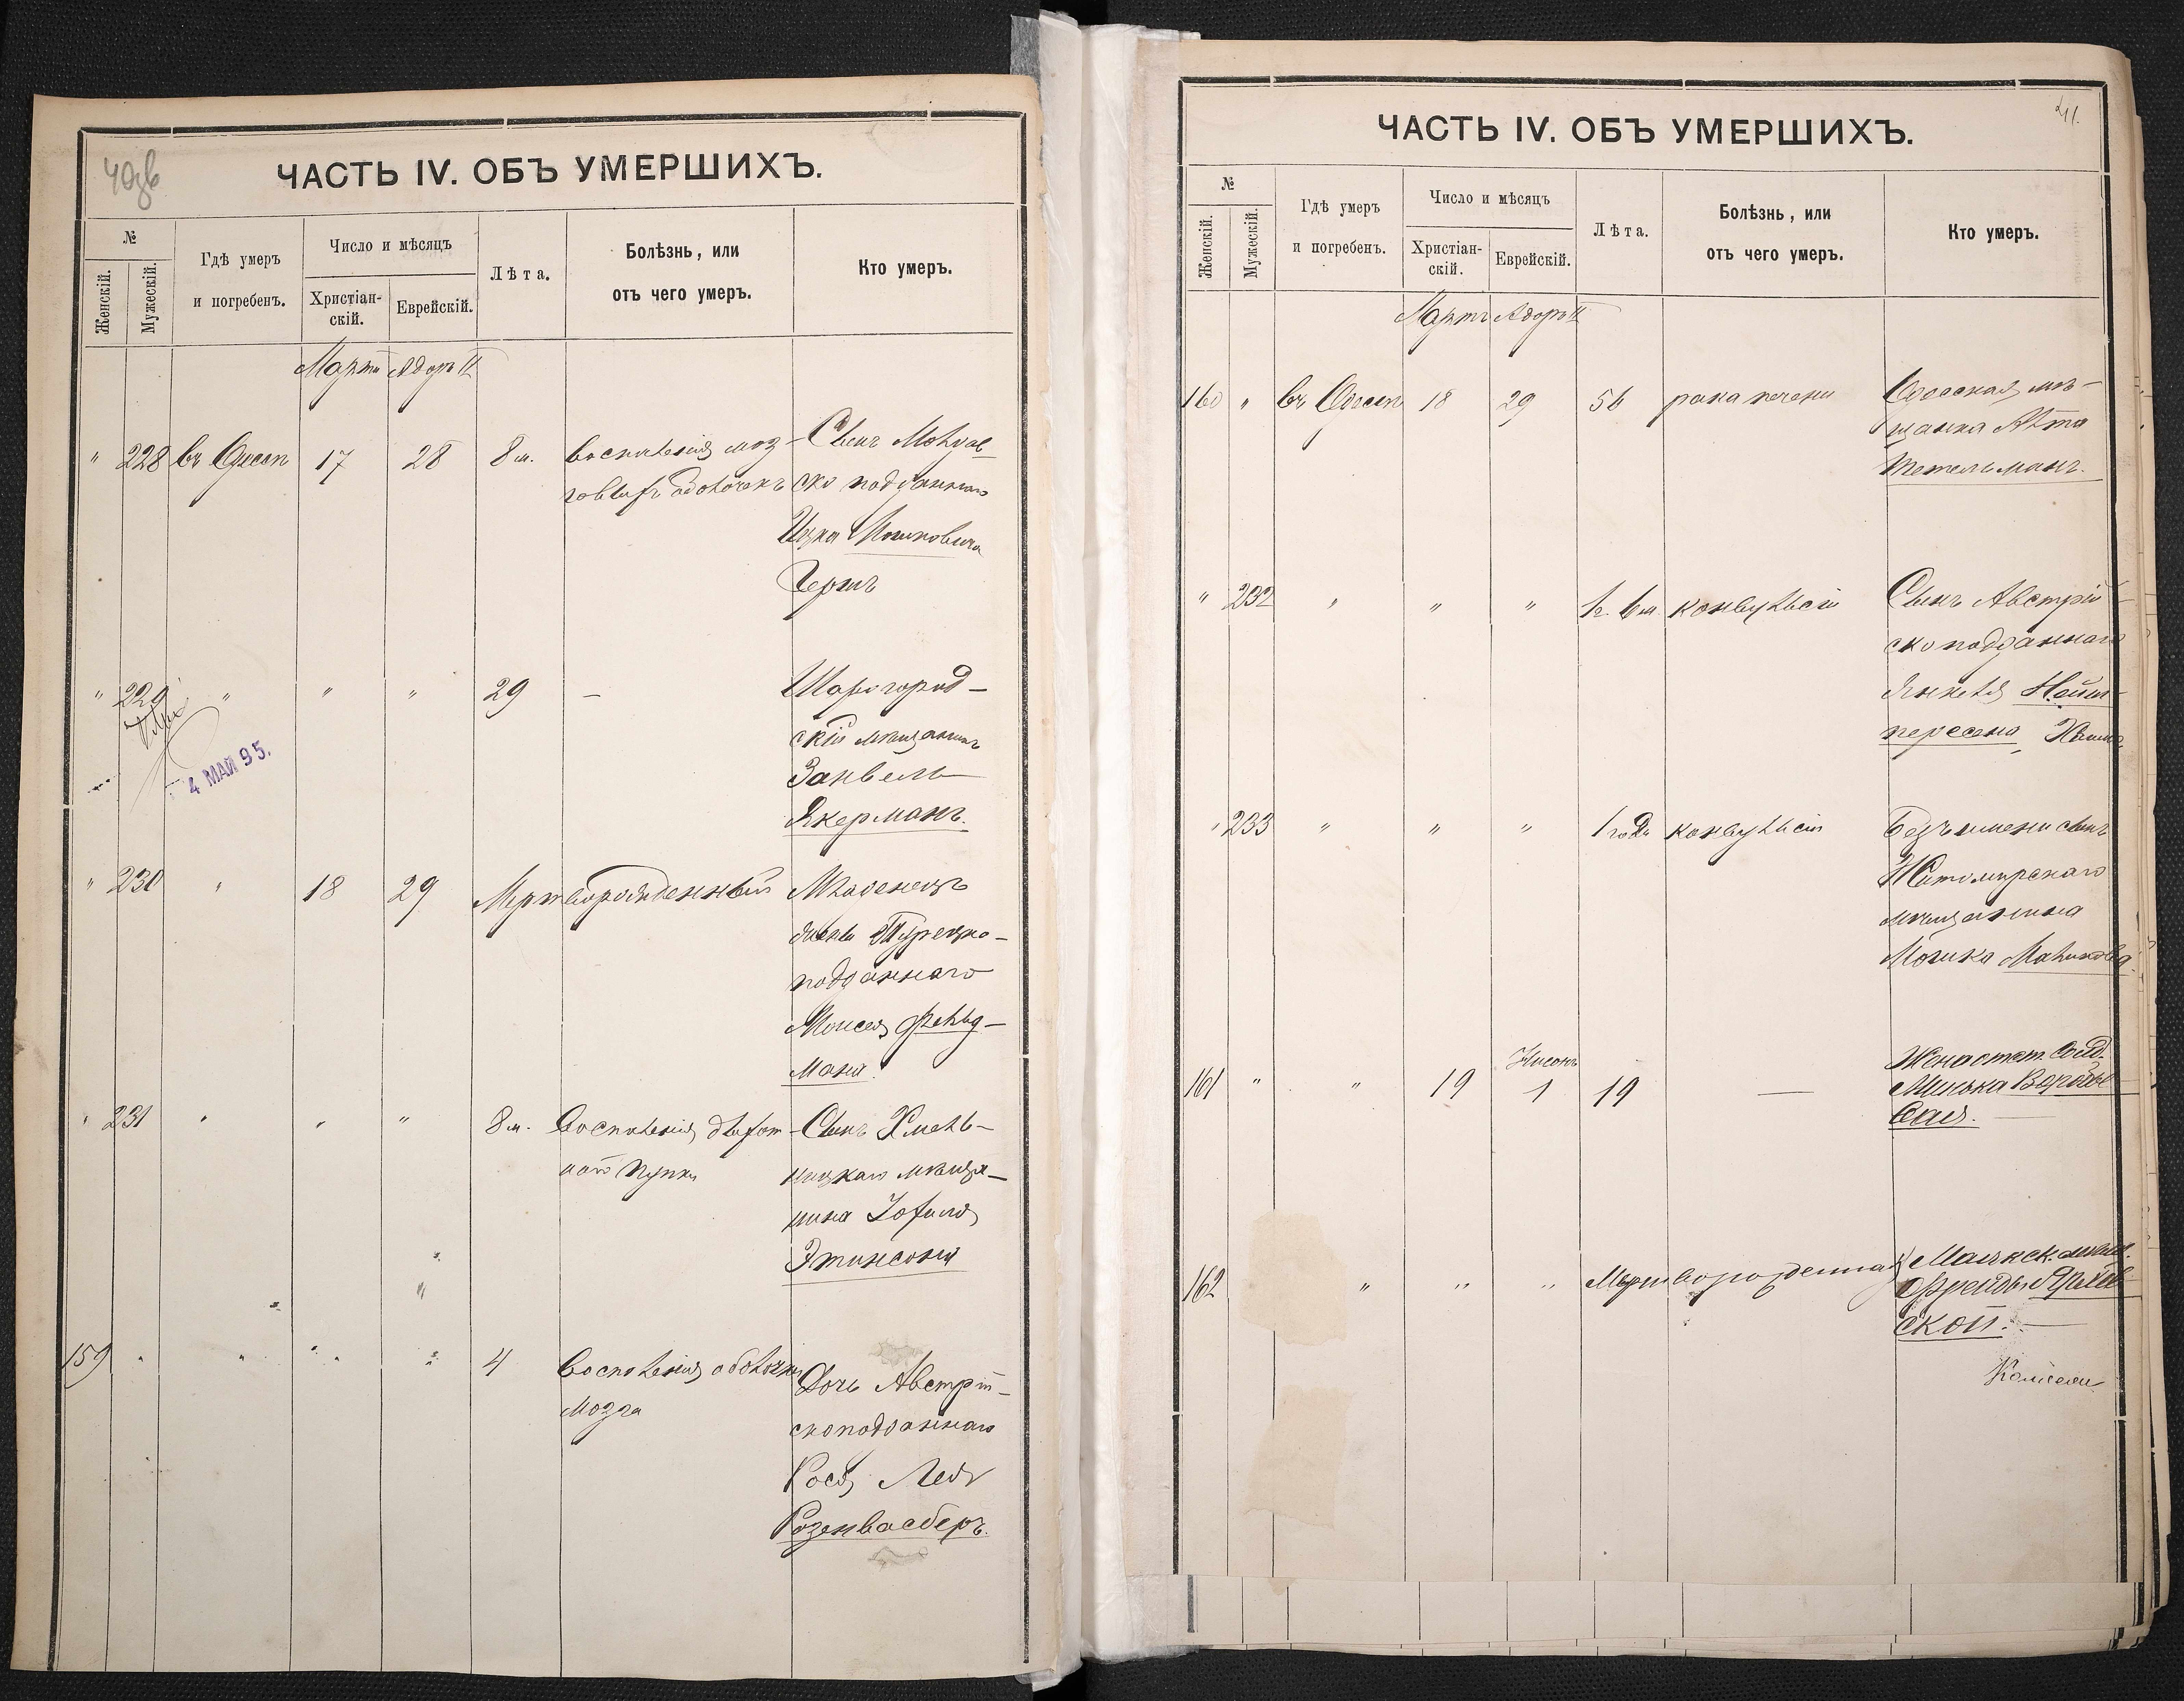 ЧАСТЬ IV. ОБЪ УМЕРШИХЪ.
№
Женскій.
Мужескій.
Гдѣ умеръ
и погребенъ.
Число и мѣсяцъ
Христіан-
скій.
Еврейскій.
Лѣта.
Болѣзнь, или
отъ чего умеръ.
Кто умеръ.
Мартъ Адоръ II
" 228 въ Одессѣ 17 28 8 м. воспаленія моз-
говыхъ оболочекъ
Сынъ
ско подданнаго
Ицка Мошковича
Герша
" 229 " " " 29 —
4 МАЙ 95.
Шаргород-
скій мѣщанинъ
Занвель
Якерманъ.
" 230 " 18 29 Мертворожденный
Младенецъ
Турецко-
подданнаго
Моисея Фельд-
мана.
" 231 " " " 8 м. Воспаленія дыхат
пути
Сынъ Хмель-
ницкаго мѣща-
нина
Этинсона
159 " " " " 4 Воспаленія оболочки
мозга
Дочь Австрій-
скоподданнаго
Рося Лея
Розенвасберъ.
ЧАСТЬ IV. ОБЪ УМЕРШИХЪ.
41.
№
Женскій.
Мужескій.
Гдѣ умеръ
и погребенъ.
Число и мѣсяцъ
Христіан-
скій.
Еврейскій.
Лѣта.
Болѣзнь, или
отъ чего умеръ.
Кто умеръ.
Мартъ Адоръ II
160 " въ Одессѣ 18 29 56 рака печени
Одесская мѣ-
щанка
Тетельманъ.
" 232 " " " 1 г. 6 м. конвульсіи
Сынъ Австрій-
скоподданнаго
Янкеля
" 233 " " " 1 годъ конвульсіи
Безъ имени сынъ
Житомирскаго
мѣщанина
Мошка Маликова.
Нисонъ
161 " " 19 1 19 —
Жена отст. солд.
162 " " " Мертворожденная
Маякск. мѣщ.
ской.